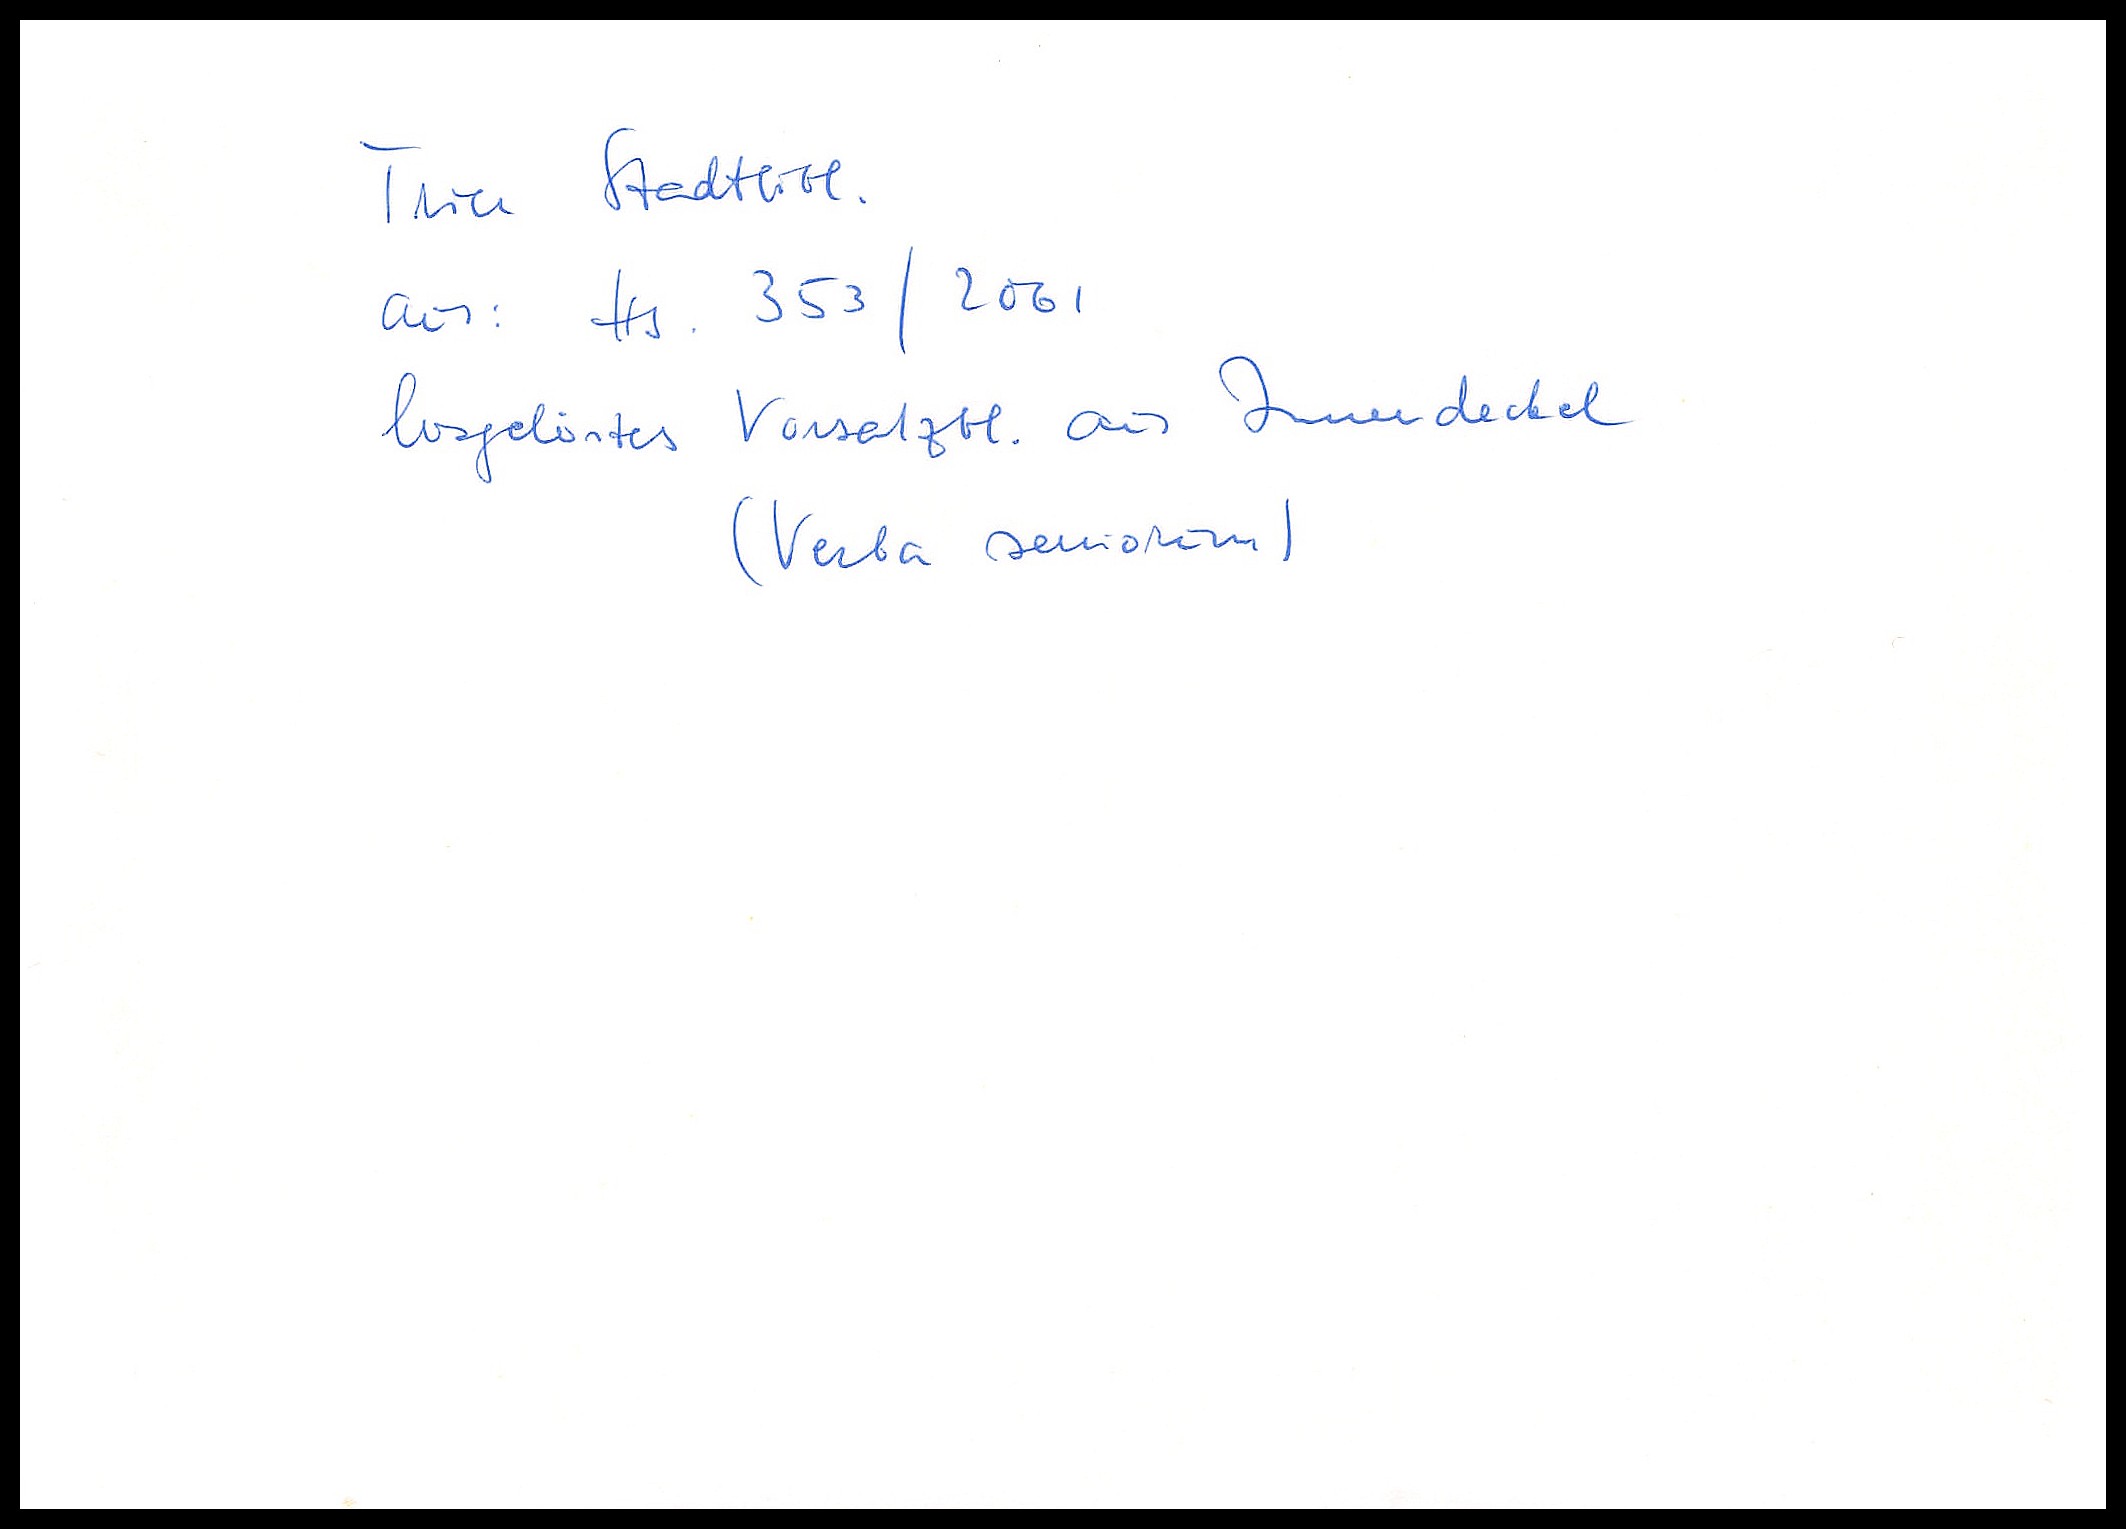 Trier Stadtbibl.
aus: Hs. 353/2061
losgelöstes Vorsatzbl. aus Innendeckel
(Verba seniorum)